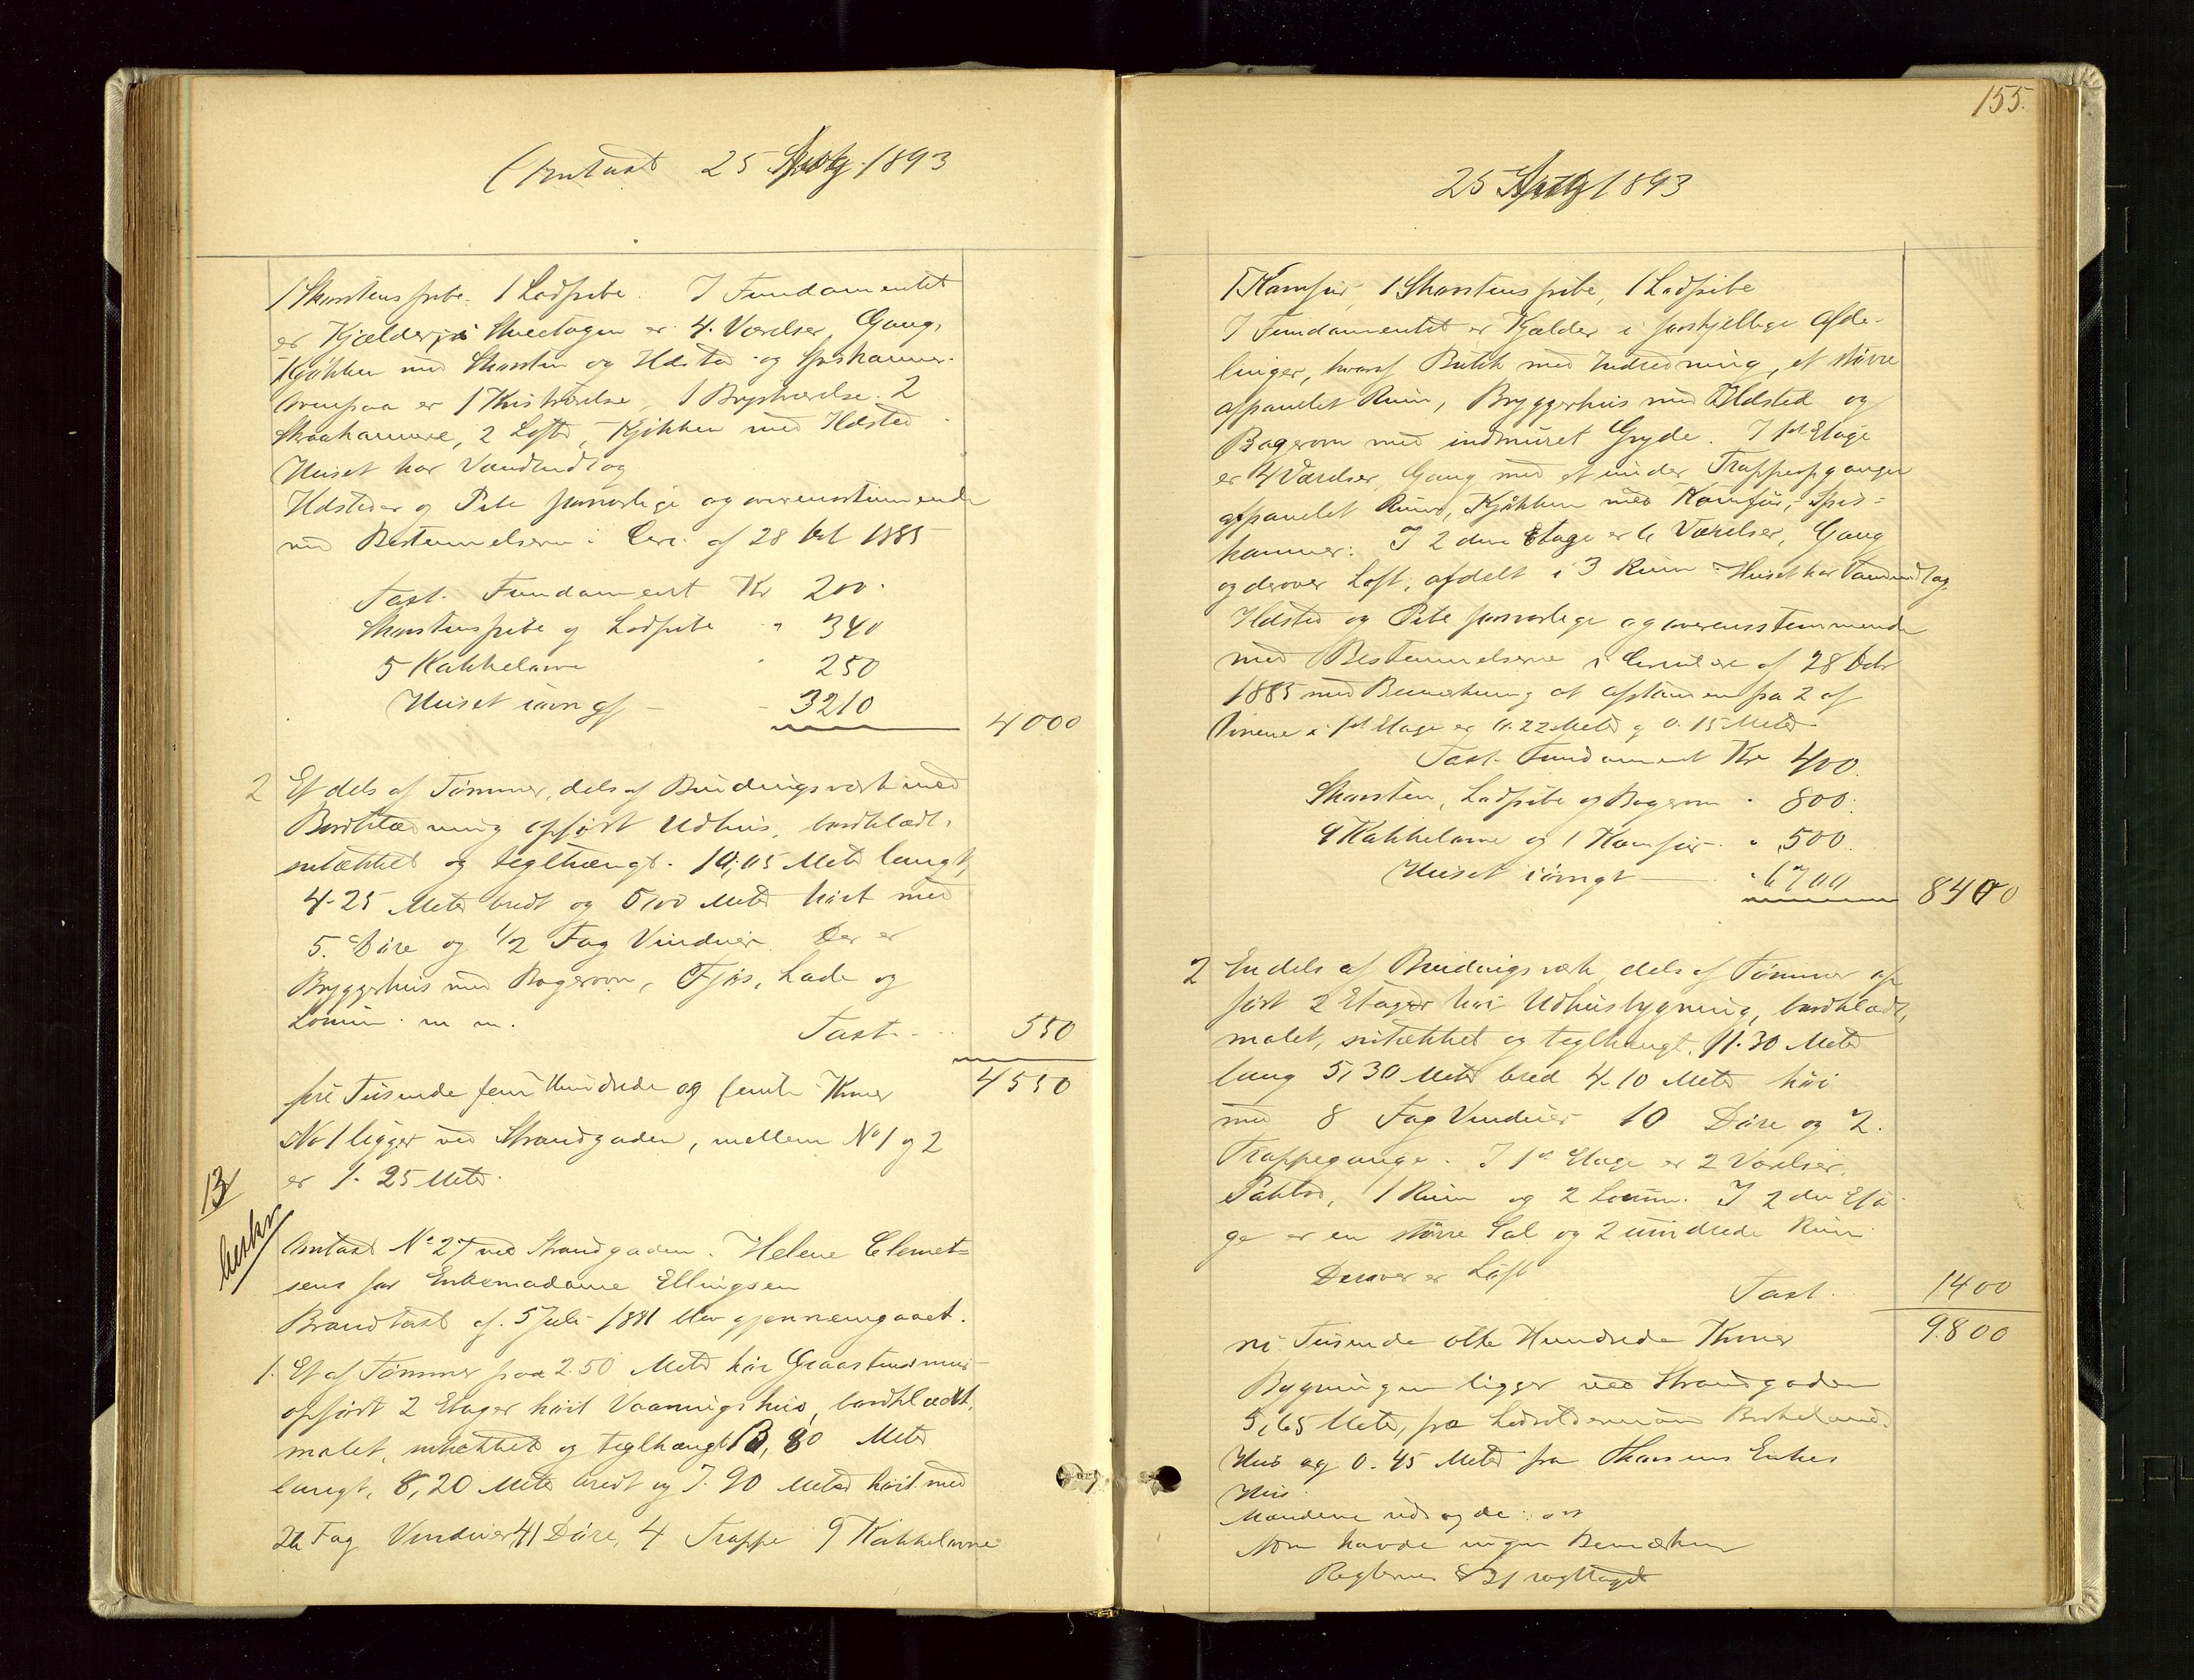 Omtaxt 25 1893
1 Skorstenspibe. 1 Lodpibe. I Fundamentet
er Kjælder, i Stueetagen er 4. Værelser, Gang,
Kjøkken med Skorsten og Ildsted og Spiskammer.
Ovenpaa er 1 Kvistværelse, 1 Brystværelse. 2
Skraakamre, 2 Lofter, Kjøkken med Ildsted
Huset har Vandindlag
Ildsteder og Pibe forsvarlige og overensstemmende
med Bestemmelserne i Circ. af 28 Oct 1885
Taxt. Fundament Kr 200.
Skorstenspibe og Lodpibe " 340
5 Kakkelovne " 250
Huset iøvrigt - 3210
4000
2 Et dels af Tømmer, dels af Bindingsværk med
Bordklædning opført Udhus, bordklædt,
nitækket og teglhængt. 10,05 Meter langt,
4.25 Meter bredt og 5,00 Meter høit med
5. Døre og 1/2 Fag Vinduer. Der er
Bryggerhus med Bagerovn, Fjøs, Lade og
m m. Taxt 550
fire Tusinde fem Hundrede og femti Kroner 4550
No 1 ligger ved Strandgaden, mellem No 1 og 2
er 1. 25 Meter.
13
beskr
Omtaxt No 27 ved Strandgaden. Helene Clemet-
sens for Enkemadame Ellingsen
Brandtaxt af. 5 Juli 1881 blev gjennemgaaet.
1. Et af Tømmer paa 2.50 Meter høi Graastensmur
opført 2 Etager høit Vaaningshus, bordklædt,
malet, nitækket og teglhængt 13,80 Meter
langt, 8,20 Meter bredt og 7.90 Meter høit med
26 Fag Vinduer, 41 Døre, 4 Trappe 9 Kakkelovne
155.
25 1893
1 Komfur, 1 Skorstenspibe, 1 Lodpibe
I Fundamentet er Kjælder i forskjellige Afde-
linger, hvoraf Butik med Indredning, et større
afpanelet Rum, Bryggerhus med Ildsted og
Bagerovn med indmuret Gryde. I 1st Etage
er 4 Værelser, Gang med et under Trappeopgangen
afpanelet Rum, Kjøkken med Komfur, Spis-
kammer. I 2den Etage er 6 Værelser, Gang
og derover Loft, afdelt i 3 Rum. Huset har Vandindlag.
Ildsted og Pibe forsvarlige og overensstemmende
med Bestemmelserne i Circulære af 28 Octr
1885 med Bemærkning at afstanden fra 2 af
Ovnene i 1st Etage er 0.22 Meter og 0.15 Meter
Taxt. Fundament Kr 400.
Skorsten, Lodpibe og Bagerovn " 800.
9 Kakkelovne og 1 Komfur " 500.
Huset iøvrigt " 6700
8400
2 En dels af Bindingsværk, dels af Tømmer op
ført 2 Etager høi Udhusbygning, bordklædt,
malet, nitækket og teglhængt, 11.30 Meter
lang 5,30 Meter bred 4.10 Meter høi
med 8 Fag Vinduer 10 Døre og 2.
Trappegange. I 1st Etage er 2 Værelser,
1 Rum og 2 I 2den Eta-
ge er en større Sal og 2 mindre Rum
Derover er Loft
Taxt. 1400
ni Tusinde otte Hundrede Kroner 9.800
Bygningen ligger ved Strandgaden
5,65 Meter, fra Birkelands
Hus og 0.45 Meter fra Hansens Enkes
Hus.
Mændene udsagde: at
 havde ingen Bemærkn
Reglerne iagttaget